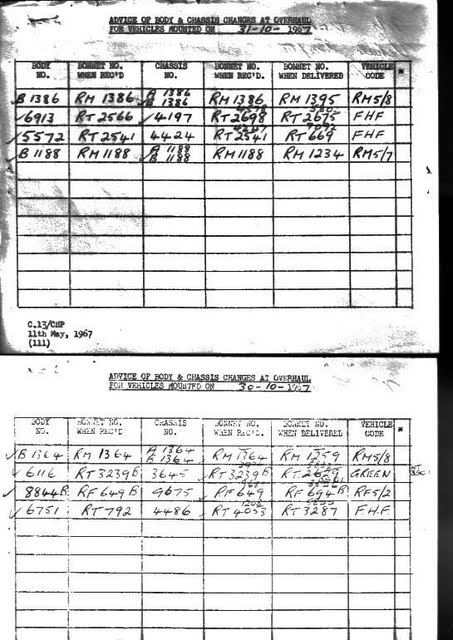 ADVICE OF BODY & CHASSIS CHANGES AT OVERHAUL
FOR VEHICLES MOUNTED ON 31-10-1967
BODY NO. BONNET NO. WHEN REC'D CHASSIS NO. BONNET NO. WHEN REC'D. BONNET NO. WHEN DELIVERED VEHICLE CODE *
B1386 RM 1386 A 1386 B 1386 RM 1386 RM 1395 RM5/8
6913 RT 2566 4197 RT 2698 RT 2675 FHF
5572 RT 2541 4424 RT 2541 RT 669 FHF
B1188 RM 1188 A 1188 B 1188 RM 1188 RM 1234 RM5/7
C.13/CHP
11th May, 1967
(111)
ADVICE OF BODY & CHASSIS CHANGES AT OVERHAUL
FOR VEHICLES MOUNTED ON 30-10-1967
BODY NO. BONNET NO. WHEN REC'D CHASSIS NO. BONNET NO. WHEN REC'D. BONNET NO. WHEN DELIVERED VEHICLE CODE *
B1364 RM 1364 A 1364 B 1364 RM 1364 RM 1259 RM5/8
6116 RT 3239 3645 RT 3239 GREEN
8844 RF 649 9675 RF 649 RF 694 RF5/2
6751 RT 792 4486 RT 4033 RT 3287 FHF